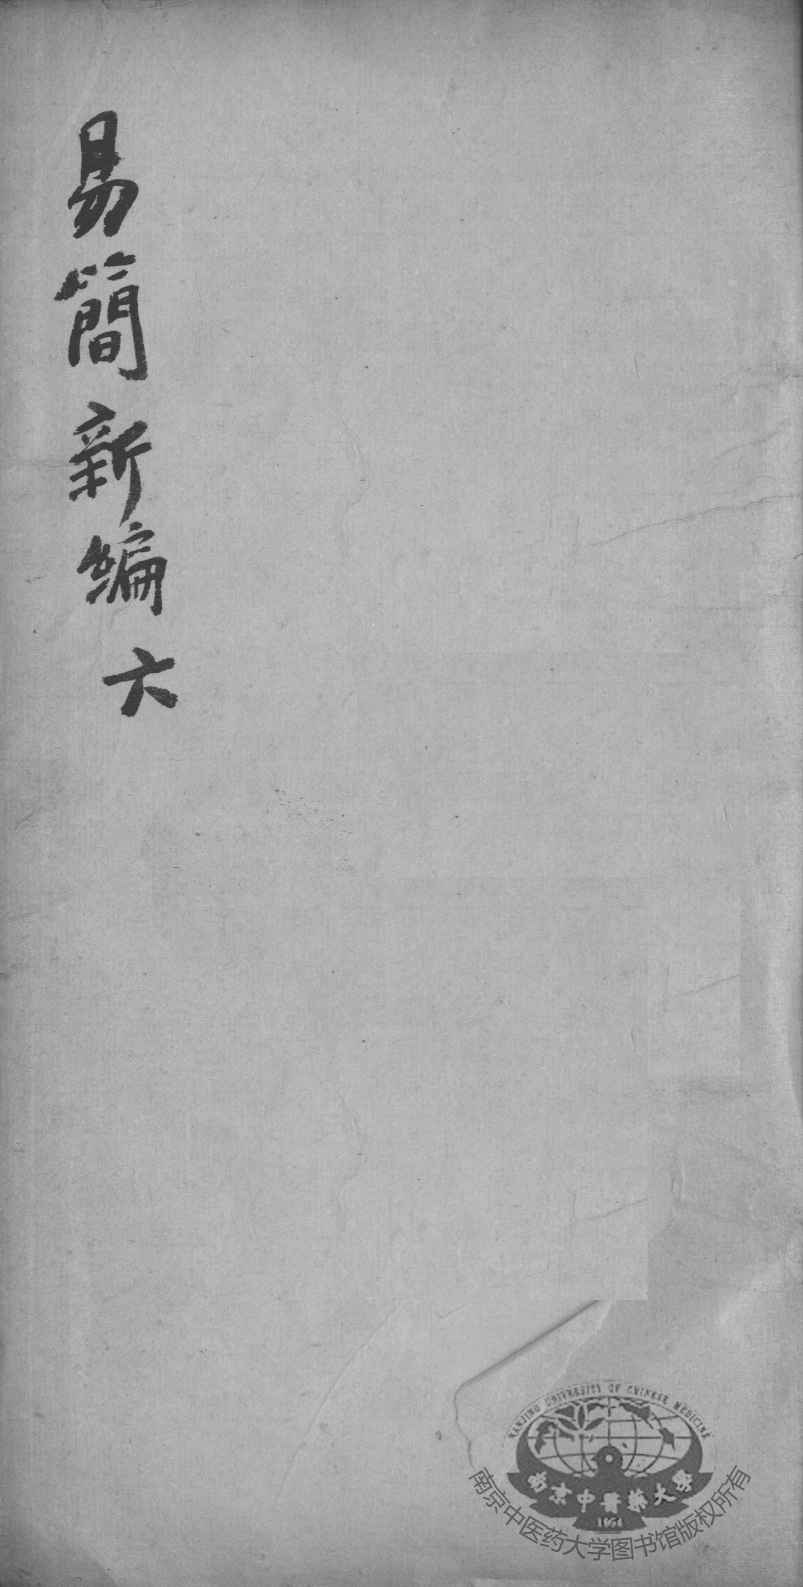 易簡新編 六
NANJING UNIVERSITY OF CHINESE MEDICINE
南京中醫藥大學
1954
南京中医药大学图书馆版权所有